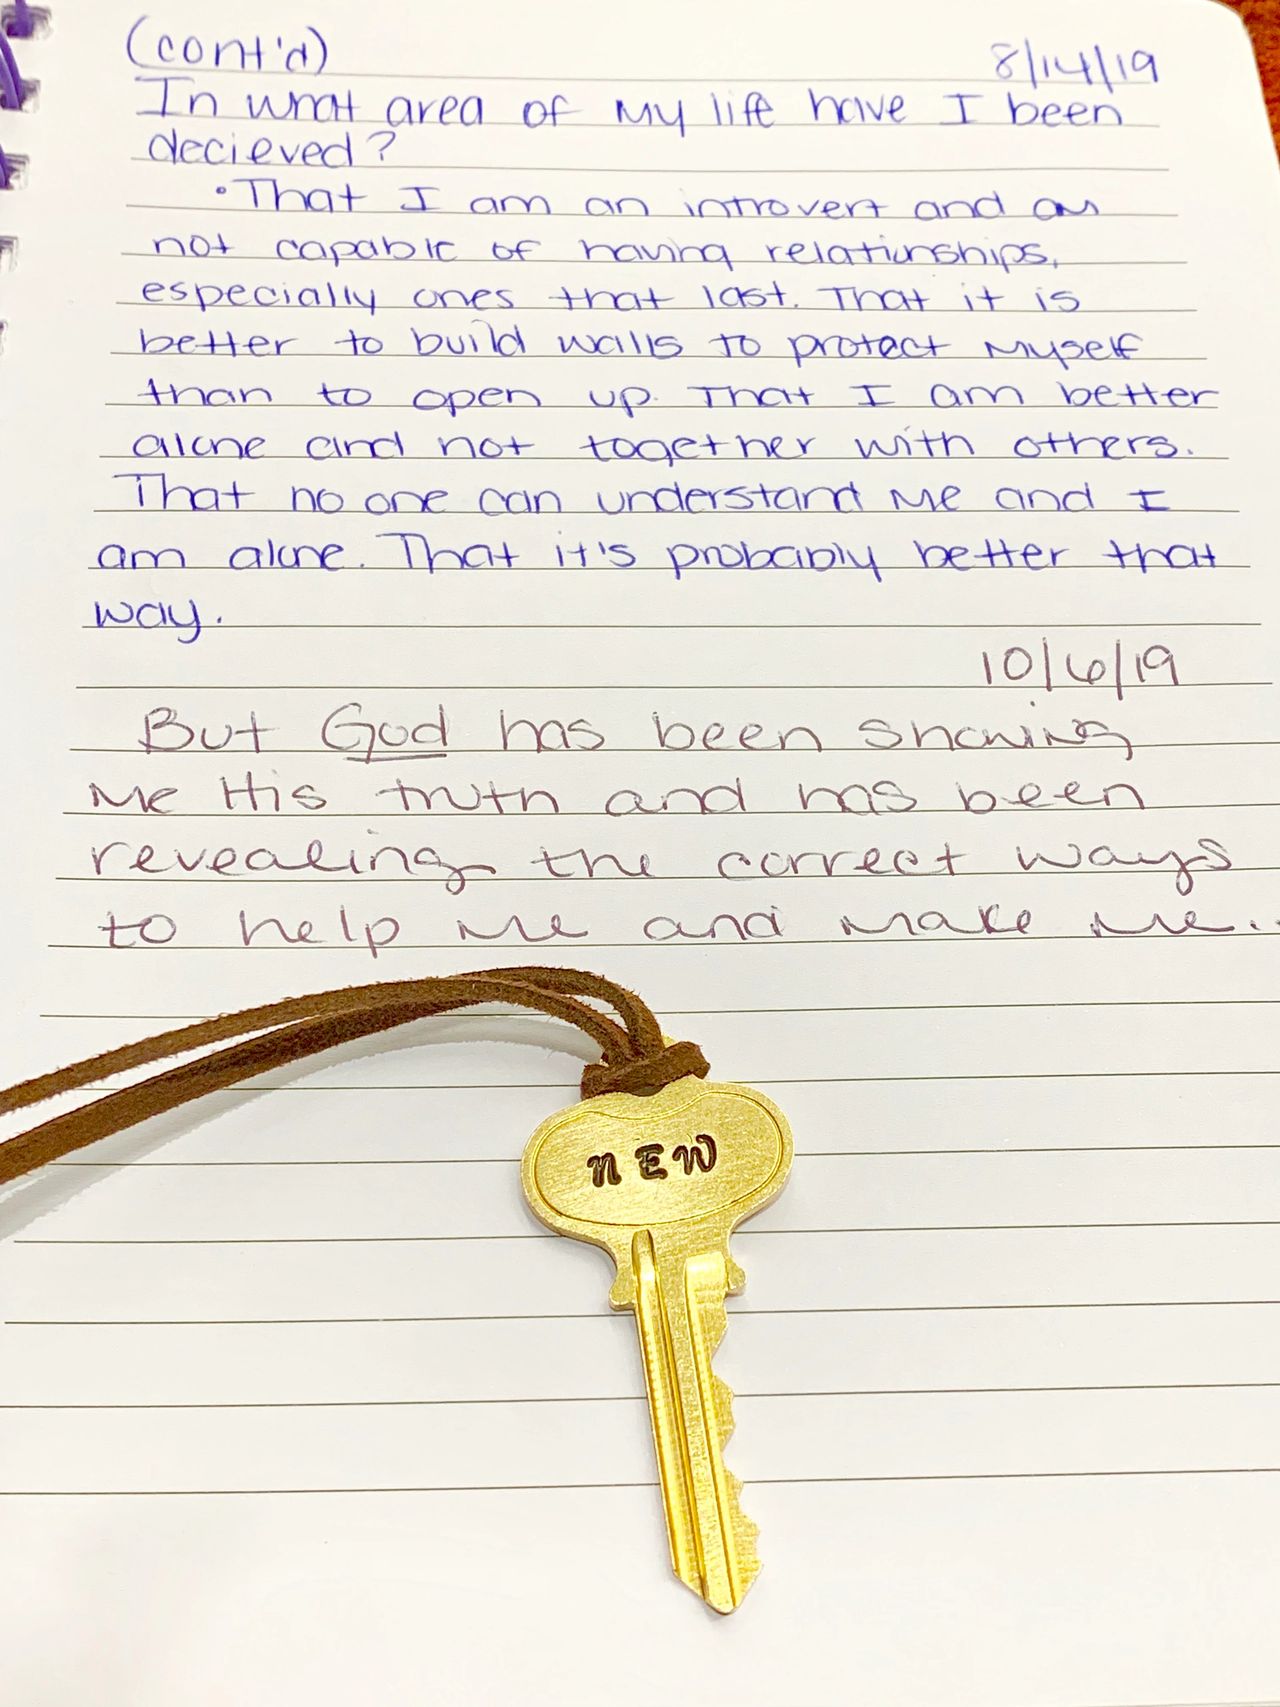 (cont'd)
8/14/19
In what area of my life have I been
decieved?
• That I am an introvert and am
not capable of having relationships,
especially ones that last. That it is
better to build walls to protect myself
than to open up. That I am better
alone and not together with others.
That no one can understand me and I
am alone. That it's probably better that
way.
10/6/19
But God has been showing
me His truth and has been
revealing the correct ways
to help me and make me..
NEW